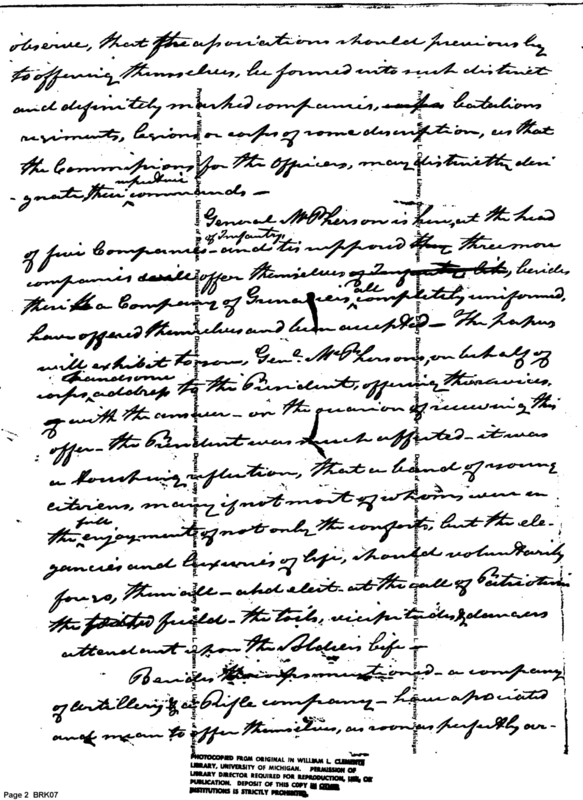 observe, that the associations should previously
to offering themselves, be formed into such distinct
and definitely marked companies, batalions
regiments, legions or corps of some description, as that
the Commissions for the Officers, may distinctly desi
-gnate, their respective commands —
General McPherson is here, at the head
of five Companies of Infantry — and tis supposed three more
companies will offer themselves besides
these a Company of Grenadiers, all completely uniformed,
have offered themselves and been accepted — The papers
will exhibit to you, Genl. McPhersons, on behalf of
corps, handsome address to the President, offering their services,
with the answer — on the occasion of receiving this
offer — the President was much affected — it was
a touching reflection, that a band of young
citizens, many if not most of whom were in
the full enjoyment of not only the comforts, but the ele-
gancies and luxuries of life, should voluntarily
forgo, them all — and elect — at the call of Patriotism
the field — the toils, vicissitudes & dangers
attendant upon the Soldiers life —
Besides the corps mentioned — a company
of artillery & a Rifle company — have associated
and mean to offer themselves, as soon as perfectly or-
PHOTOCOPIED FROM ORIGINAL IN WILLIAM L. CLEMENTS
LIBRARY, UNIVERSITY OF MICHIGAN. PERMISSION OF
LIBRARY DIRECTOR REQUIRED FOR REPRODUCTION, USE, OR
PUBLICATION. DEPOSIT OF THIS COPY IN OTHER
INSTITUTIONS IS STRICTLY PROHIBITED.
Page 2 BRK07